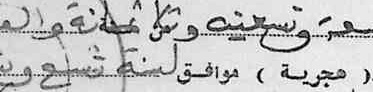 وتسعين وثلاثمائة والف
( هجرية ) موافق لسنة تسع